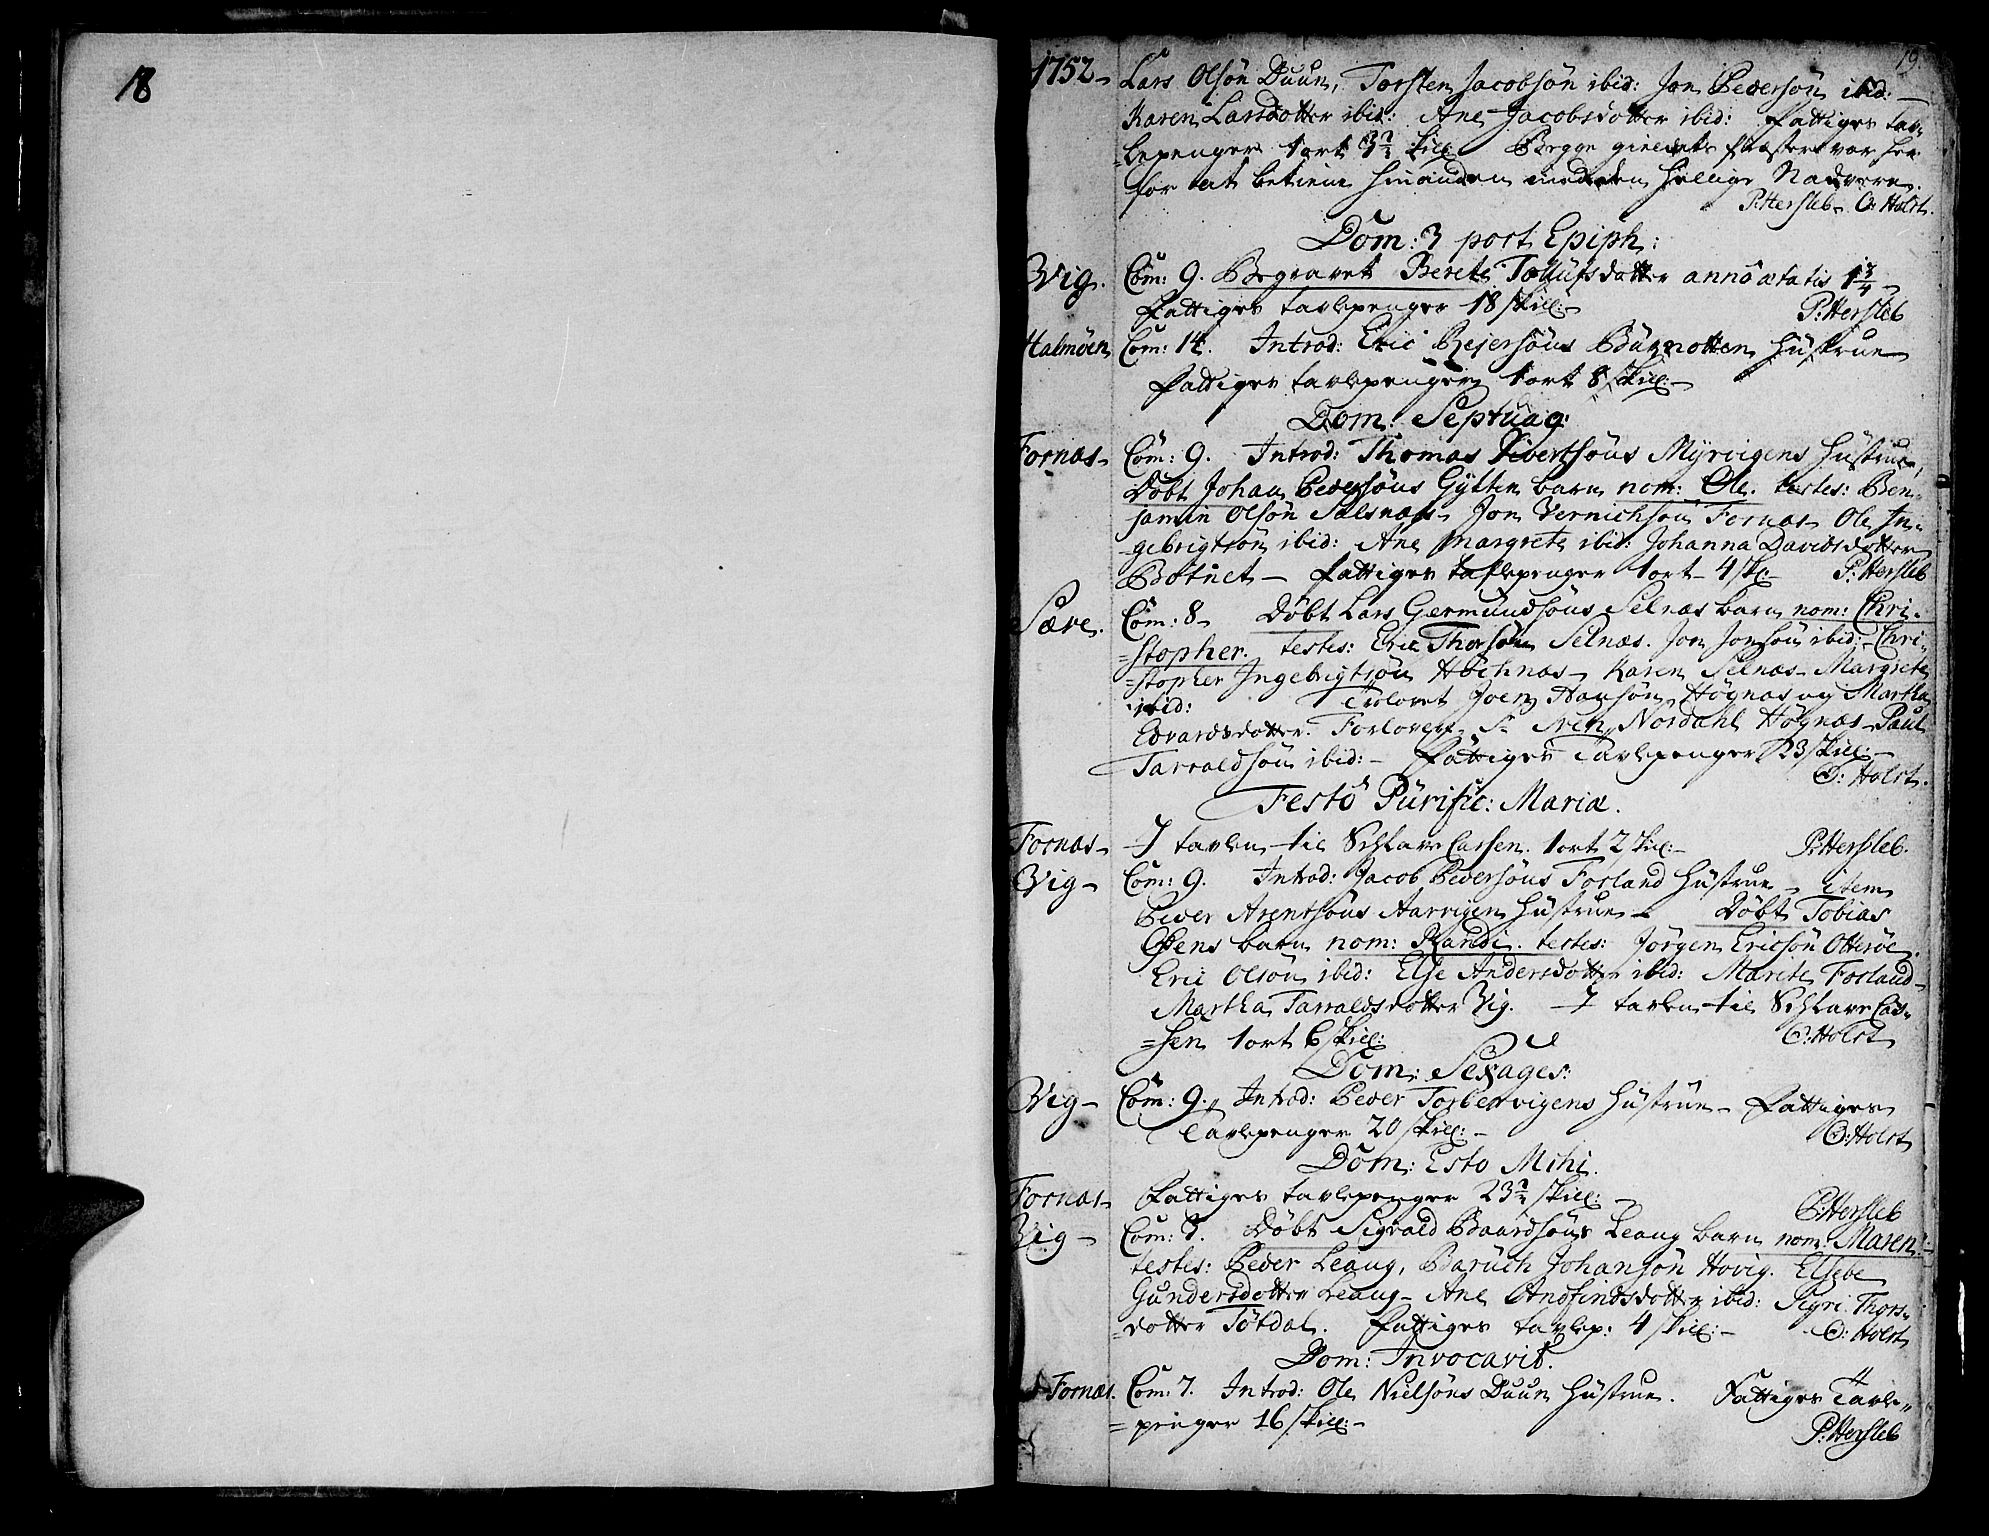 18
19.
1752- Lars Olsön Duun, Torsten Jacobsön ibid: Jon Pedersön ibid:
Karen Larsdotter ibid: Ane Jacobsdotter ibid: Fattiges tav-
lepenger 1 ort 3½ skill Begge gieldets Præster var her
for at betiene med den hellige Nadvere.
P:Hersleb- O: Holst.
Dom: 3 post Epiph:
Vig. Com: 9. Begravet Berete Tollufsdotter anno ætatis 1¾
Fattiges tavlepenger 18 skill:- P:Hersleb
Halmöen Com: 14. Introd: Eric Rejersöns Bürnotten Hüstrue
Fattiges tavlepenger 1 ort 8 skill:-
Dom: Septuag:
Fornæs- Com: 9. Introd: Thomas Sivertsöns Myrvigens Hüstrue,
Döbt Johan Pedersöns Gylten barn nom: Ole. testes: Ben-
jamin Olsön Salsnæs- Jon Vernichsön Fornæs- Ole In-
gebrigtsön ibid: Ane Margrete ibid: Johanna Davidsdotter
Botnet- Fattiges tavlepenger 1 ort- 4 sk: P:Hersleb
Sære. Com: 8- Döbt Lars Germundsöns Selnæs barn nom: Chri-
stopher. testes: Eric Thorsön Selnæs. Jon Jonsön ibid:- Chri-
stopher Ingebrigtsön Höchnæs- Karen Selnæs- Margrete
ibid: Trolovet Joen Hansön Högnæs og Martha
Edvardsdotter. Forlovere Sr Iven Nordahl Högnæs- Paul
Tarraldsön ibid:- Fattiges Tavlepenger 23 skill:-
O: Holst.
Festo Purific: Mariæ.
Fornæs- I tavlen til Schlave Cassen. 1 ort 2 skil:- P:Hersleb.
Vig- Com: 9. Introd: Jacob Pedersöns Forland Hüstrue- item
Peder Arentsöns Aarvigen Hüstrue- Döbt Tobias
Osens barn nom: Randi. testes: Jörgen Ericsön Otteröe.
Eric Olsön ibid: Else Andersdotter ibid: Marite Forland-
Martha Tarraldsdotter Vig. I tavlen til Schlave Cas-
sen 1 ort 6 skill: O:Holst
Dom: Sexages:
Vig- Com: 9. Introd: Peder Torbenvigens Hüstrue- Fattiges
Tavlepenger 20 skill:- O:Holst
Dom: Esto Mihi.
Fornæs- Fattiges tavlepenger 23½ skill:- P:Hersleb
Vig- Com: 7. Döbt Sigvald Baardsöns Leaug barn nom: Maren.
testes: Peder Leaug, Baruch Johansön Hovig. Elsebe
Gundersdotter Leaug- Ane Andfindsdotter ibid: Sigri Thors-
dotter Tötdal. Fattiges tavlep: 4 skill:- O: Holst
Dom: Invocavit.
Fornæs. Com: 7. Introd: Ole Nielsöns Duun Hüstrue. Fattiges Tavle-
penger 16 skill:-
P:Hersleb